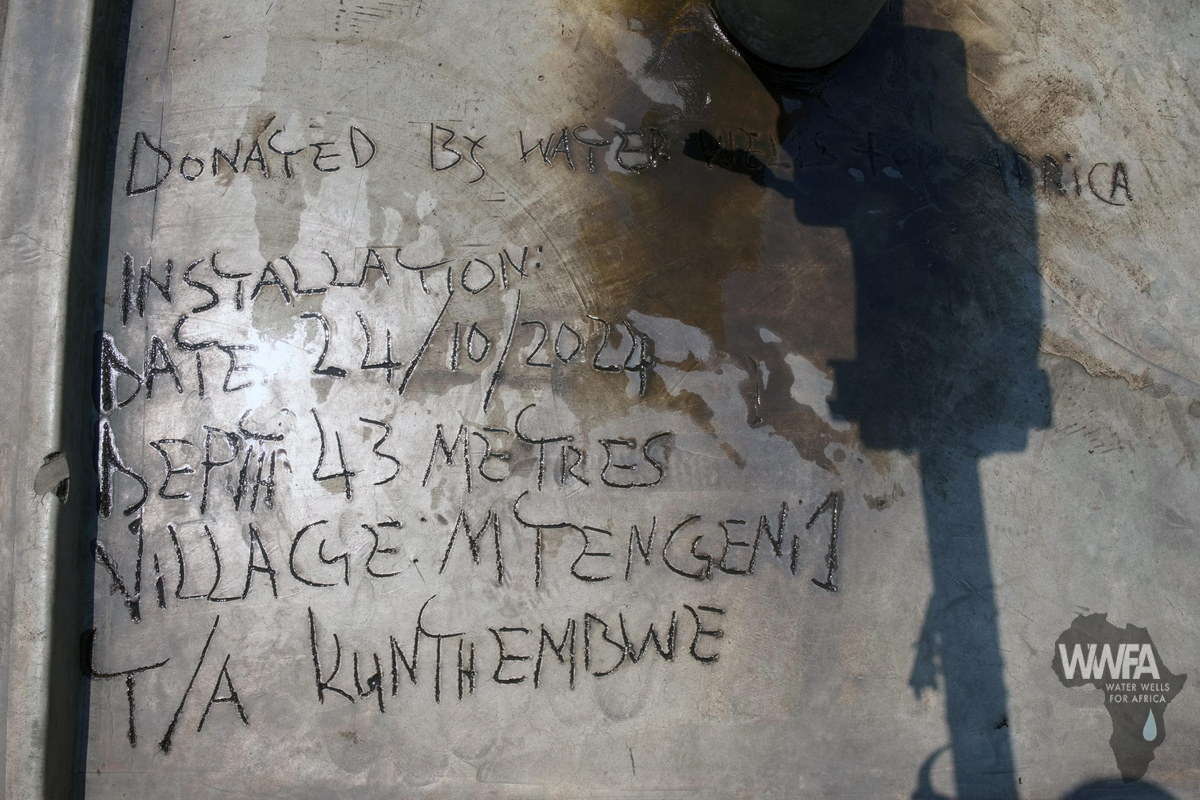 DONATED By WATER WELLS for AFRiCA
INSTALLATION:
DATE 24/10/2024
DEPTH 43 METRES
ViLLAGE: MTENGENi 1
T/A KUNTHEMBWE
WWFA
WATER WELLS
FOR AFRICA